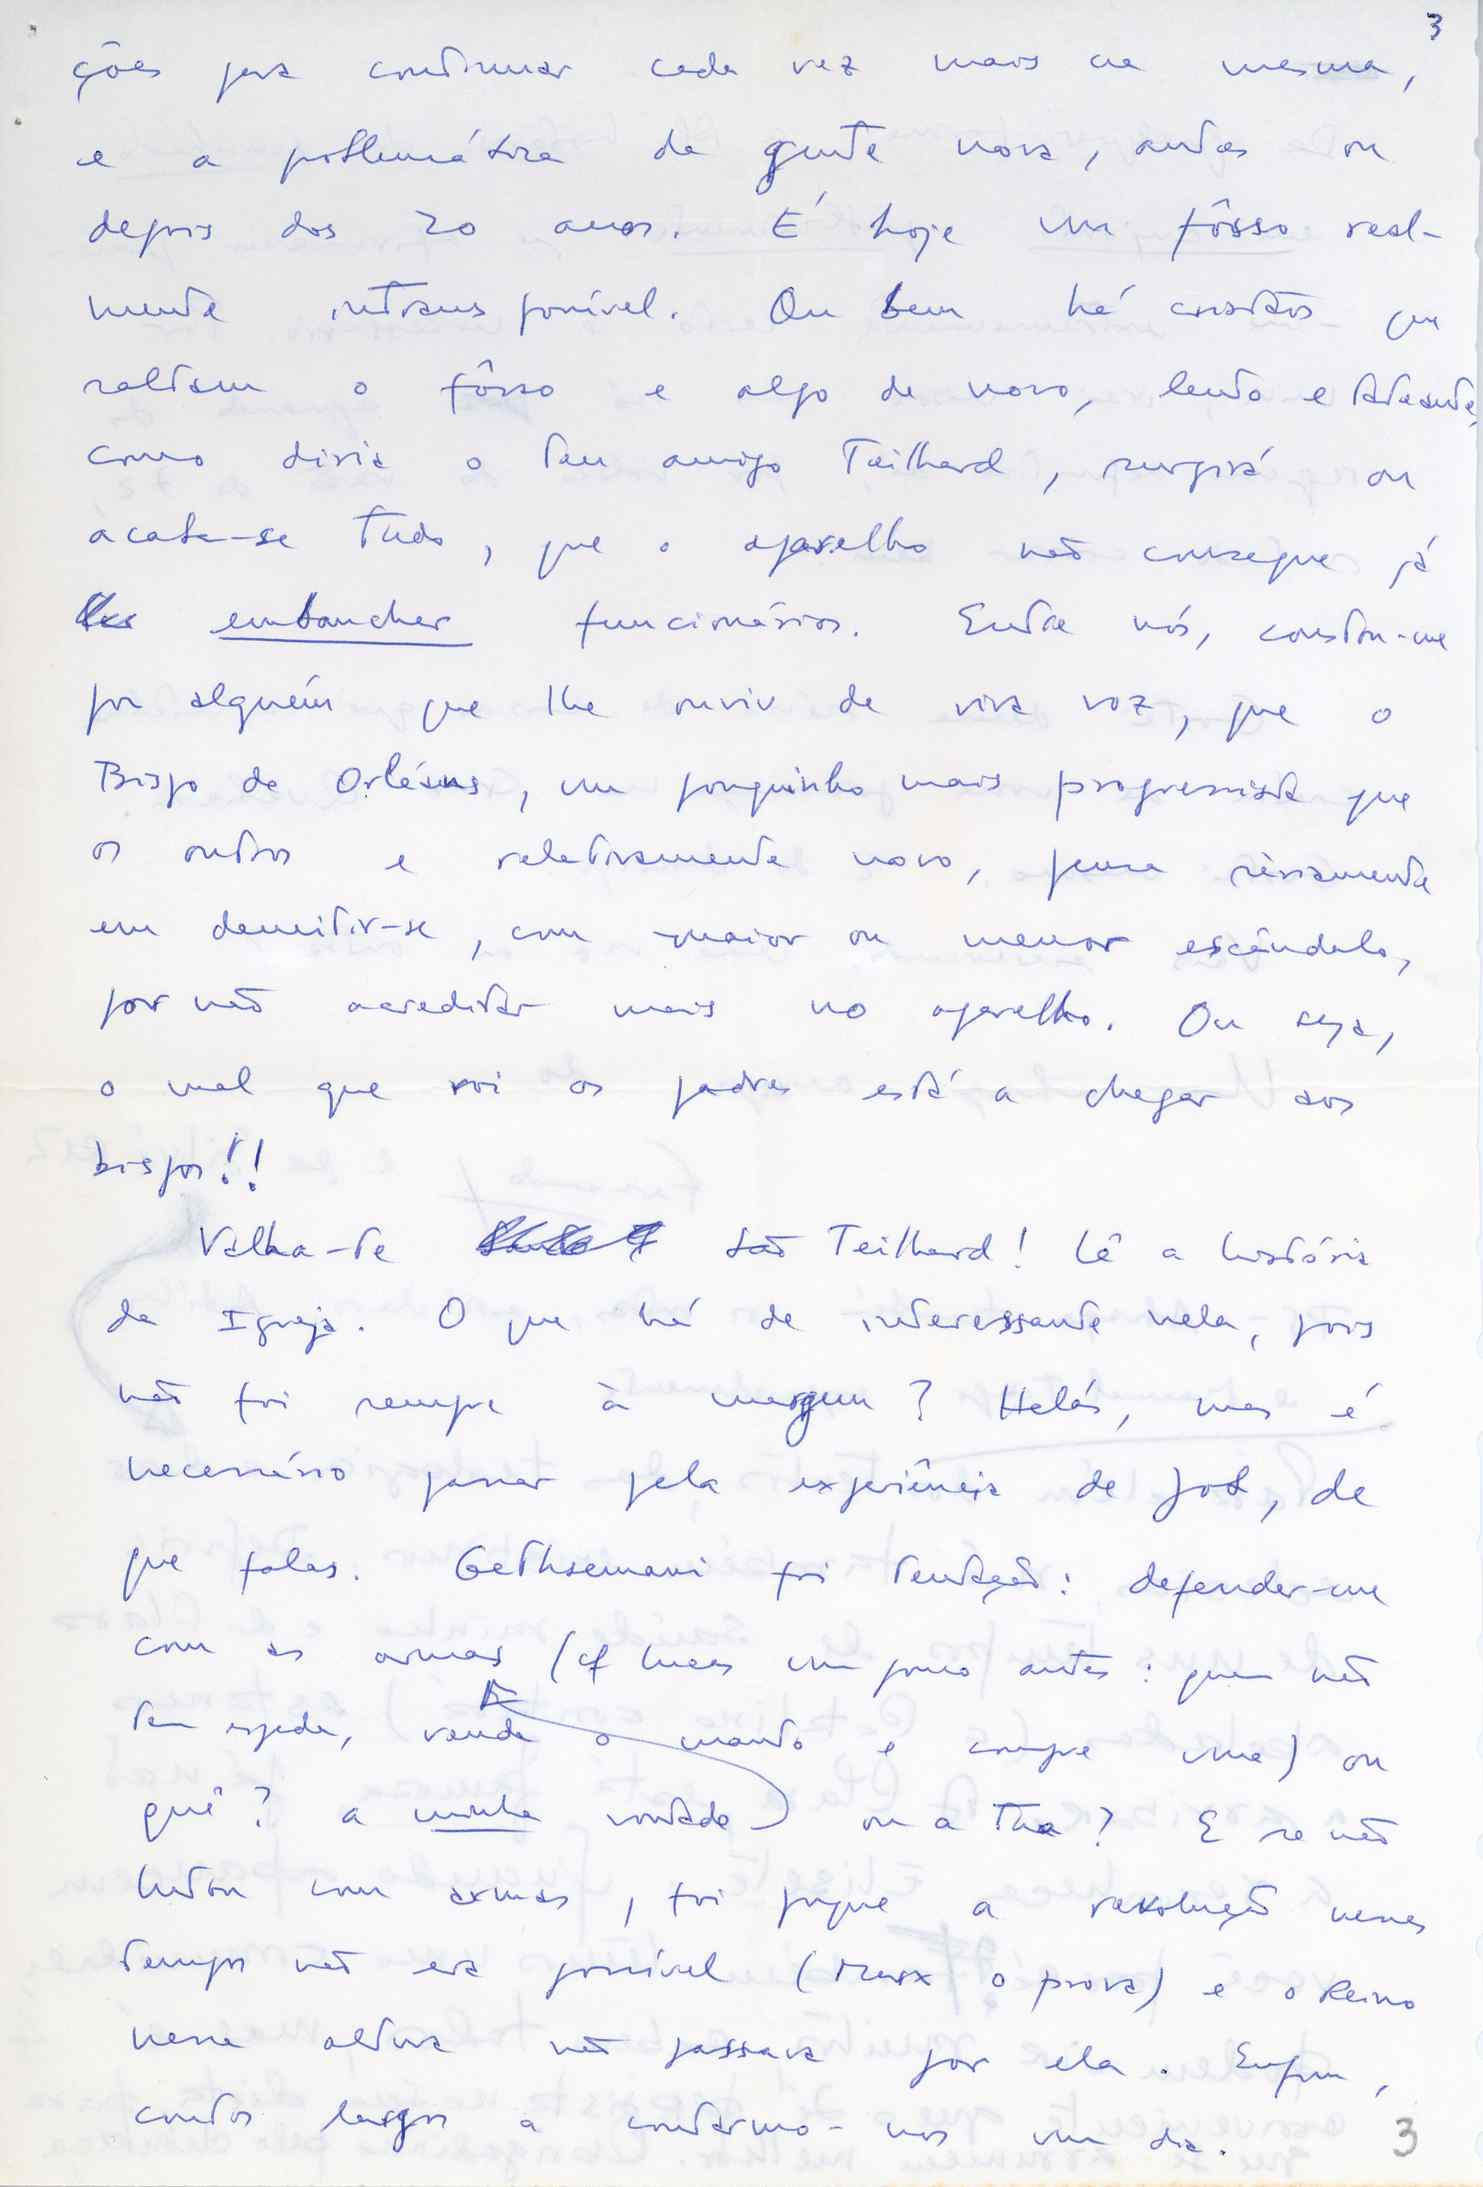 3
ções para continuar cada vez mais na mesma,
e a problemática da gente nova, antes ou
depois dos 20 anos. É hoje um fôsso real-
mente intransponível. Ou bem há cristãos que
saltam o fôsso e algo de novo, lento e
como diria o teu amigo Teilhard, surgirá ou
acaba-se tudo, que o aparelho não consegue já
embaucher funcionários. Entre nós, constou-me
por alguém que lhe ouviu de viva voz, que o
Bispo de Orléans, um pouquinho mais progressista que
os outros e relativamente novo, pensa sèriamente
em demitir-se, com maior ou menor escândalo,
por não acreditar mais no aparelho. Ou seja,
o mal que roi os padres está a chegar aos
bispos!!
Valha-te São Teilhard! Lê a história
da Igreja. O que há de interessante nela, pois
não foi sempre à margem? Helás, mas é
necessário passar pela experiência de Job, de
que falas. Gethsemani foi tentação: defender-me
com as armas (cf Lucas um pouco antes: quem não
tem espada, venda o manto e compre uma) ou
quê? a minha vontade ou a Tua? E se não
lutou com armas, foi porque a revolução nesses
tempos não era possível (Marx o prova) e o Reino
nessa altura não passava por ela. Enfim,
contos largos a contarmo-nos um dia.
3